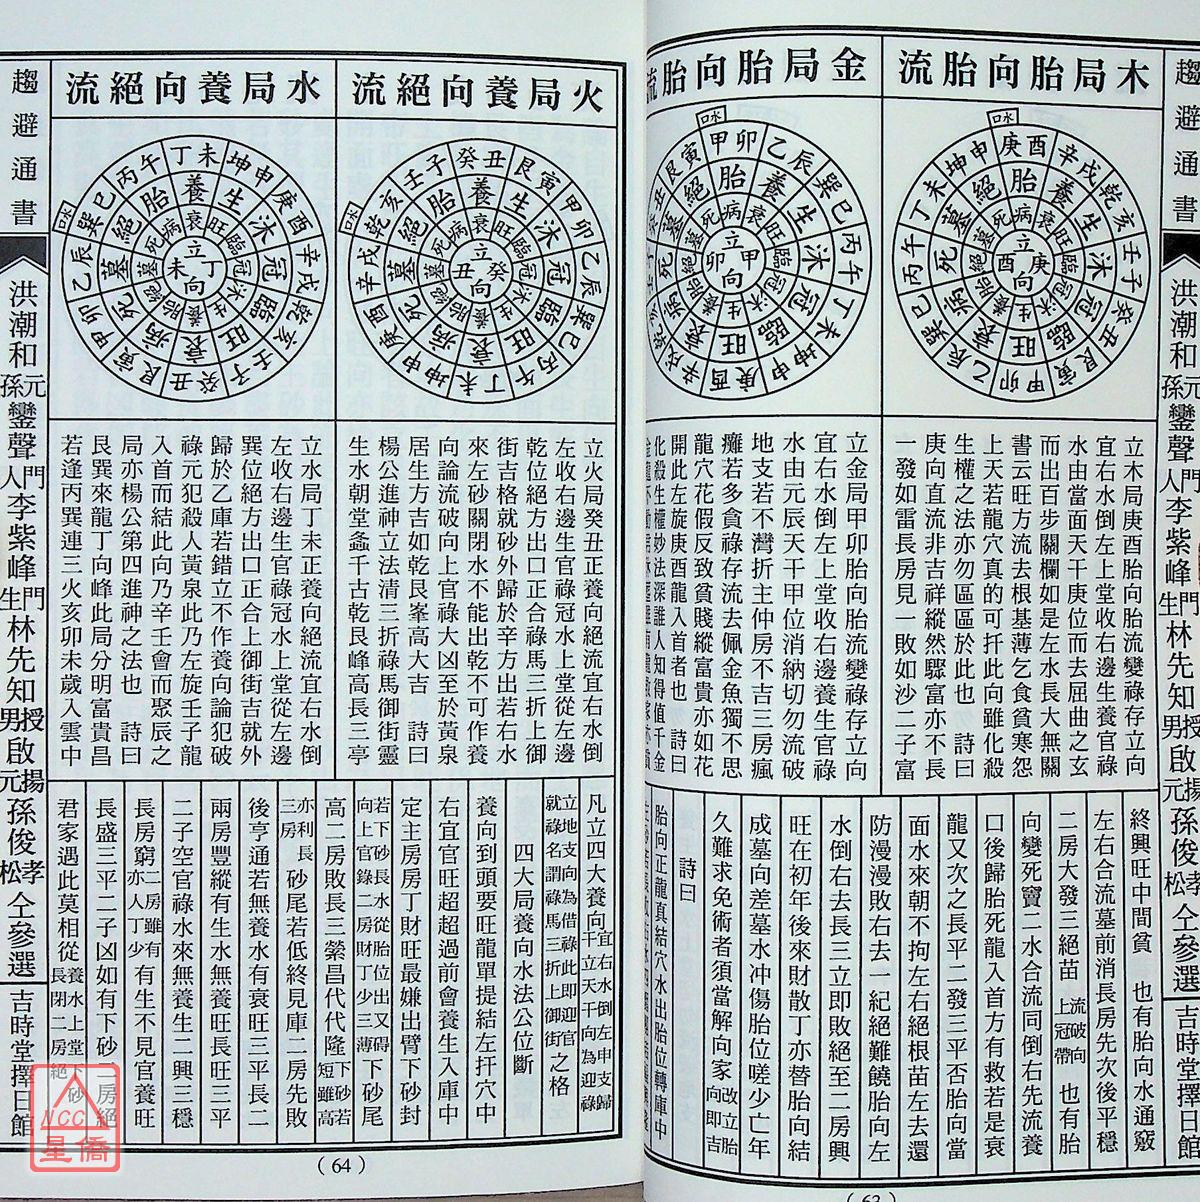 趨避通書
洪潮和元孫鑾聲門人李紫峰門生林先知授男啟元揚孫俊松孝仝參選
吉時堂擇日館
木局胎向胎流
水口
庚酉辛戌乾亥壬子癸丑艮寅甲卯乙辰巽巳丙午丁未坤申
胎養生沐冠臨旺衰病死墓絕
立庚酉向
立木局庚酉胎向胎流變祿存立向
宜右水倒左上堂收右邊生養官祿
水由當面天干庚位而去屈曲之玄
而出百步關欄如是左水長大無關
書云旺方流去根基薄乞食貧寒怨
上天若龍穴真的可扦此向雖化殺
生權之法亦勿區區於此也　詩曰
庚向直流非吉祥縱然驟富亦不長
一發如雷長房見一敗如沙二子富
金局胎向胎流
水口
甲卯乙辰巽巳丙午丁未坤申庚酉辛戌
胎養生沐冠臨旺衰
立甲卯向
立金局甲卯胎向胎流變祿存立向
宜右水倒左上堂收右邊養生官祿
水由元辰天干甲位消納切勿流破
地支若不灣折主仲房不吉三房瘋
癱若多貪祿存流去佩金魚獨不思
龍穴花假反致貧賤縱富貴亦如花
開此左旋庚酉龍入首者也　詩曰
化殺生權妙法深誰人知得值千金
終興旺中間貧　也有胎向水通竅
左右合流墓前消長房先次後平穩
二房大發三絕苗　流破向上冠帶　也有胎
向變死竇二水合流同倒右先流養
口後歸胎死龍入首方有救若是衰
龍又次之長平二發三平否胎向當
面水來朝不拘左右絕根苗左去還
防漫漫敗右去一紀絕難饒胎向左
水倒右去長三立即敗絕至二房興
旺在初年後來財散丁亦替胎向結
成墓向差墓水冲傷胎位嗟少亡年
久難求免術者須當解向家　改立胎向即吉
詩曰
胎向正龍真結穴水出胎位轉庫中
火局養向絕流
水口
癸丑艮寅甲卯乙辰巽巳丙午丁未坤申庚酉辛戌乾亥壬子
養生沐冠臨旺衰病死墓絕胎
立癸丑向
立火局癸丑正養向絕流宜右水倒
左收右邊生官祿冠水上堂從左邊
乾位絕方出口正合祿馬三折上御
街吉格就砂外歸於辛方出若右水
來左砂關閉水不能出乾不可作養
向論流破向上官祿大凶至於黃泉
居生方吉如乾艮峯高大吉　詩曰
楊公進神立法清三折祿馬御街靈
生水朝堂螽千古乾艮峰高長三亭
水局養向絕流
水口
丁未坤申庚酉辛戌乾亥壬子癸丑艮寅甲卯乙辰巽巳丙午
養生沐冠臨旺衰病死墓絕胎
立丁未向
立水局丁未正養向絕流宜右水倒
左收右邊生官祿冠水上堂從左邊
巽位絕方出口正合上御街吉就外
歸於乙庫若錯立不作養向論犯破
祿元犯殺人黃泉此乃左旋壬子龍
入首而結此向乃辛壬會而聚辰之
局亦楊公第四進神之法也　詩曰
艮巽來龍丁向峰此局分明富貴昌
若逢丙巽連三火亥卯未歲入雲中
凡立四大養向宜右水倒左申支歸干立天干向為迎祿
立地支向為借祿此即迎官就祿名謂祿馬三折上御街之格
四大局養向水法公位斷
養向到頭要旺龍單提結左扞穴中
右官官旺超超過前會養生入庫中
定主房房丁財旺最嫌出臂下砂封
若下砂長水從胎位出又碍向上官祿二房財丁少三薄下砂尾
高二房敗長三縈昌代代隆下砂若短雖高
亦利長三房　砂尾若低終見庫二房先敗
後亨通若無養水有衰旺三平長二
兩房豐縱有生水無養旺長旺三平
二子空官祿水來無養生二興三穩
長房窮二房雖有亦人丁少有生不見官養旺
長盛三平二子凶如有下砂
君家遇此莫相從養水上堂長閉二房
趨避通書
洪潮和元孫鑾聲門人李紫峰門生林先知授男啟元揚孫俊松孝仝參選
吉時堂擇日館
（64）
（63
NCC
星僑